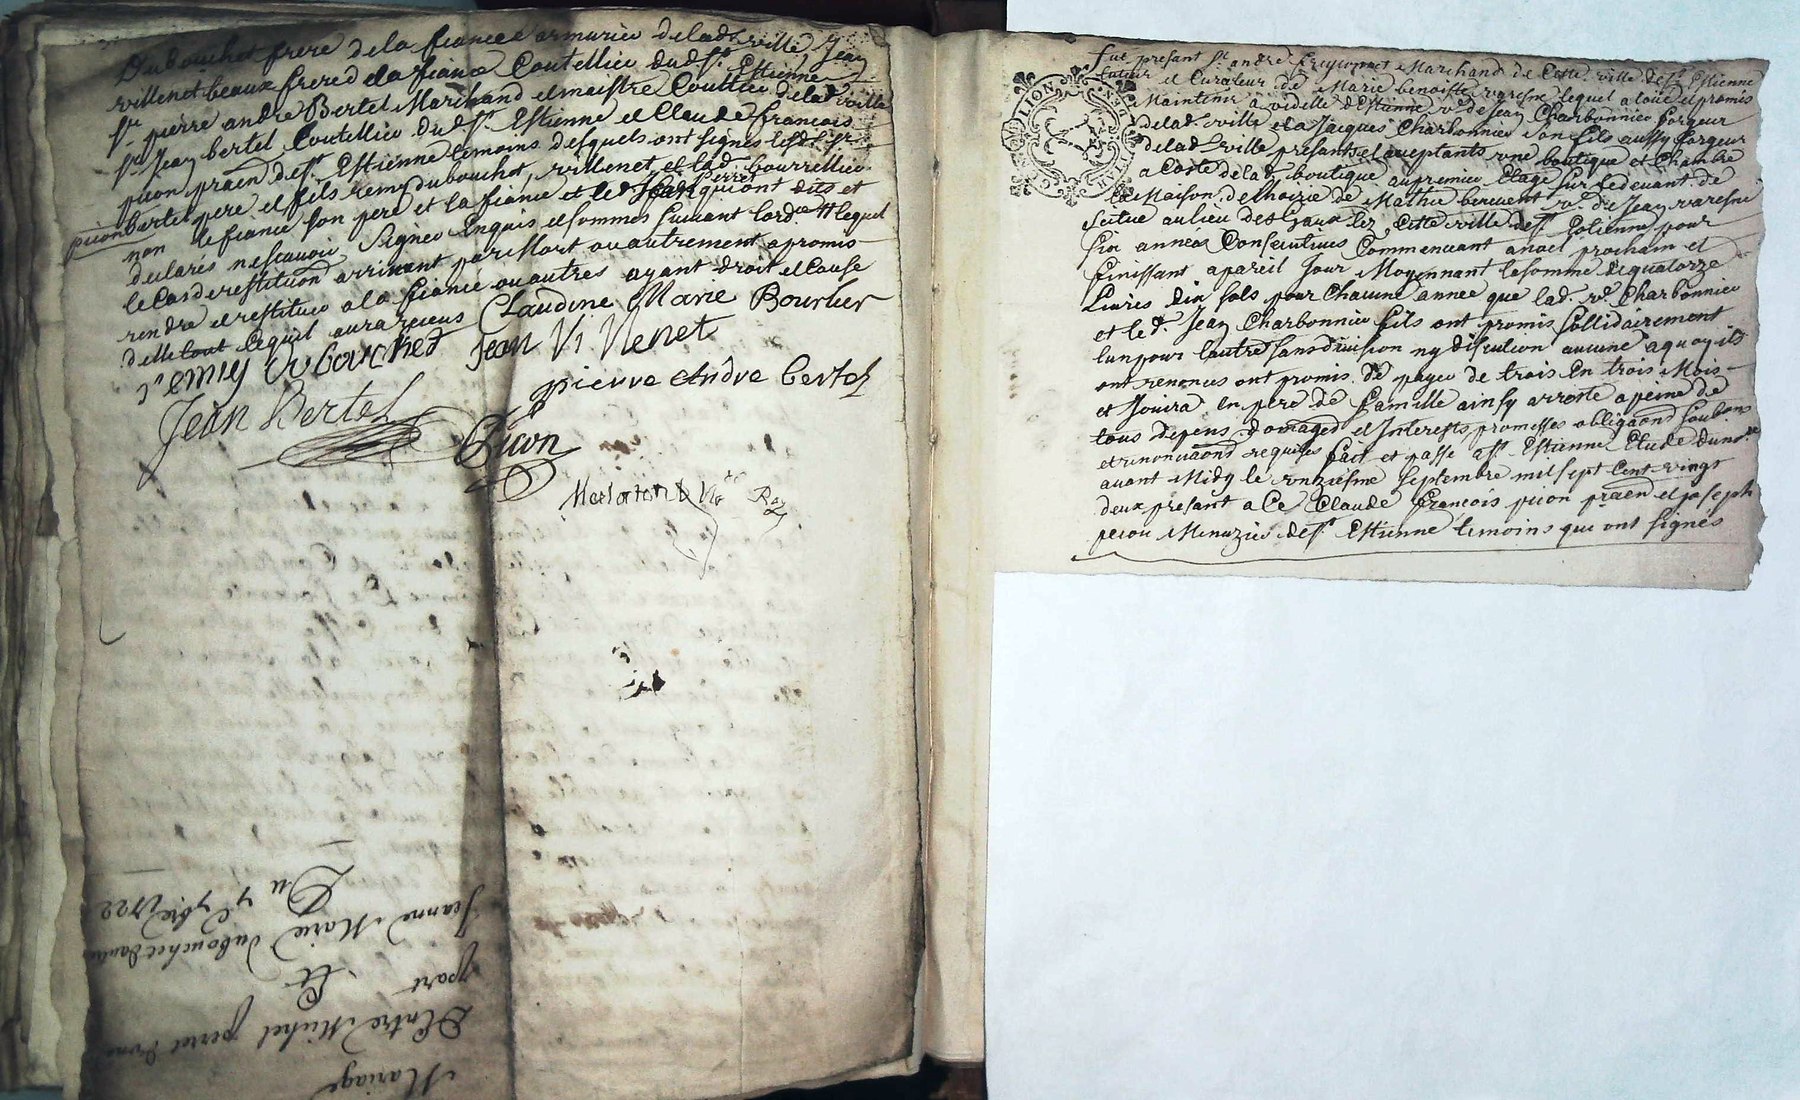 Dubouchet frere de la fiancee armurier delad ville Jean
villenet beaux frere d ela fiancé Coutellier dud St Estienne
Sr pierre andre Bertel Marchand et maistre Couttlier delad ville
Sr Jean bertel Coutellier dud St Estienne et Claude francois
picon praen de St Estienne temoins desquels ont signés lesd Srs
Bertel pere et fils remy dubouchet, villenet et lad bourrellier
picon non le fiancé son pere et la fiancé et led Jean perret qui ont dits et
declarés nescavoir signer Enquis et sommés suivant lordce lequel
le Cas de restitution arrivant par Mort ou autrement a promis
rendre et restituer a la fiancé ou autres ayant droit et Cause
delle tout Cequil aura receus Claudine Marie Bourlier
remy dubouchet Jean Vi Nenet
pierre Andre bertel
Jean Bertel
Picon
Mariage
D'Entre Michel perret dune
part
Et
Jeanne Marie dubouchet dautre
Du 4e 7bre 1722
LION
GEN
fut présant Sr andré Marchand de Cette ville de St Estienne
tuteur et Curateur de Marie benoiste varesne lequel a loüé et promis
Maintenir a videlle d'Estienne ve de Jean Charbonnier forgeur
delad ville et a Jacques Charbonnier son fils aussy forgeur
delad ville présants et acceptants une boutique et Chambre
a Costé delad boutique au premier Etage sur ledevant de
la Maison, delhoirie de Mathie ve de Jean varesne
scitue au lieu des Gaux lez Cette ville de St Etienne pour
six années Consecutives Commencant anoel prochain et
finissant apareil Jour Moyennant la somme de quatorze
Livres dix sols pour Chacune année que lad. ve Charbonnier
et led. Jean Charbonnier fils ont promis sollidairement
lun pour lautre sans division ny discution aucune aquoy ils
ont renonces ont promis de payer de trois En trois Mois
et Jouira en pere de famille ainsy arresté apeine de
tous depens domages et Interests, promesses obligaons soubmons
et renonciaons requises fait et passé a St Estienne Etude du nore
avant Midy le onziesme septembre mil sept Cent vingt
deux présant a Ce Claude francois picon praen et joseph
perou Menuzier de St Estienne temoins qui ont signés